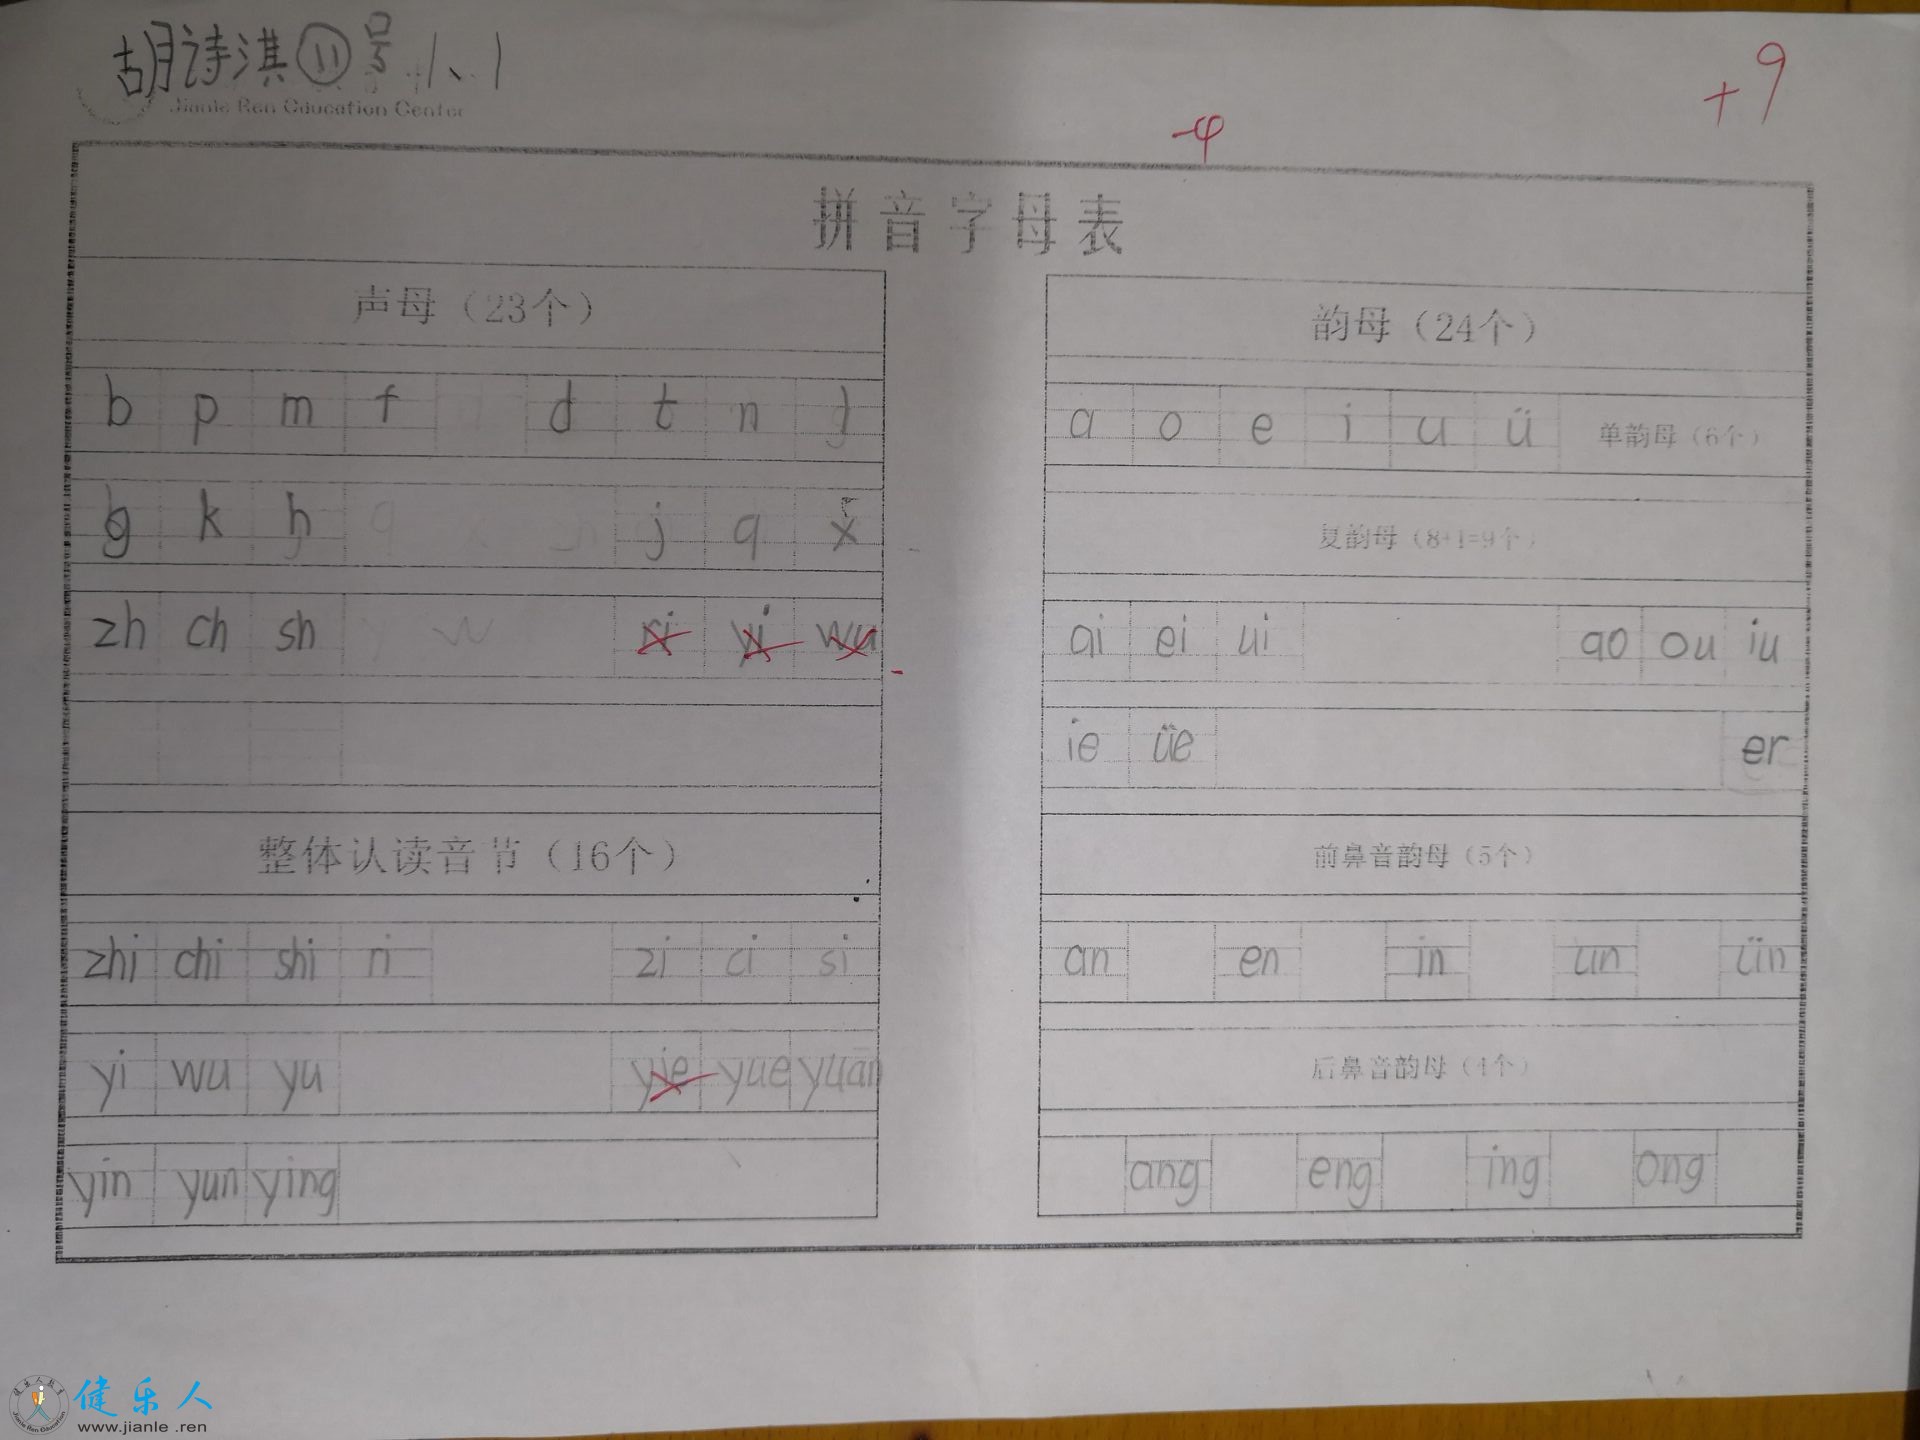 胡诗淇 ⑪号 1、1
Jianle Ren Education Center
+9
-4
拼音字母表
声母（23个）
b p m f d t n l
g k h j q x
zh ch sh ri yi wu
整体认读音节（16个）
zhi chi shi ri zi ci si
yi wu yu yie yue yuan
yin yun ying
韵母（24个）
a o e i u ü 单韵母（6个）
复韵母（8+1=9个）
ai ei ui ao ou iu
ie üe er
前鼻音韵母（5个）
an en in un ün
后鼻音韵母（4个）
ang eng ing ong
健乐人
www.jianle.ren